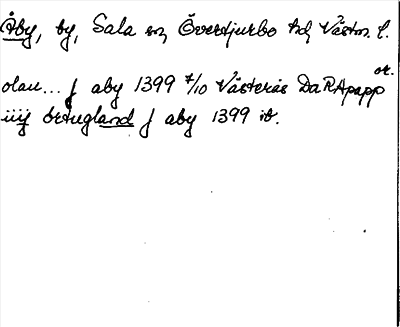 Åby, by, Sala sn, Överstjurbo hd, Västm. l.
or.
olau... J aby 1399 7/10 Västerås DaRApapp
iiij örtugland J aby 1399 ib.